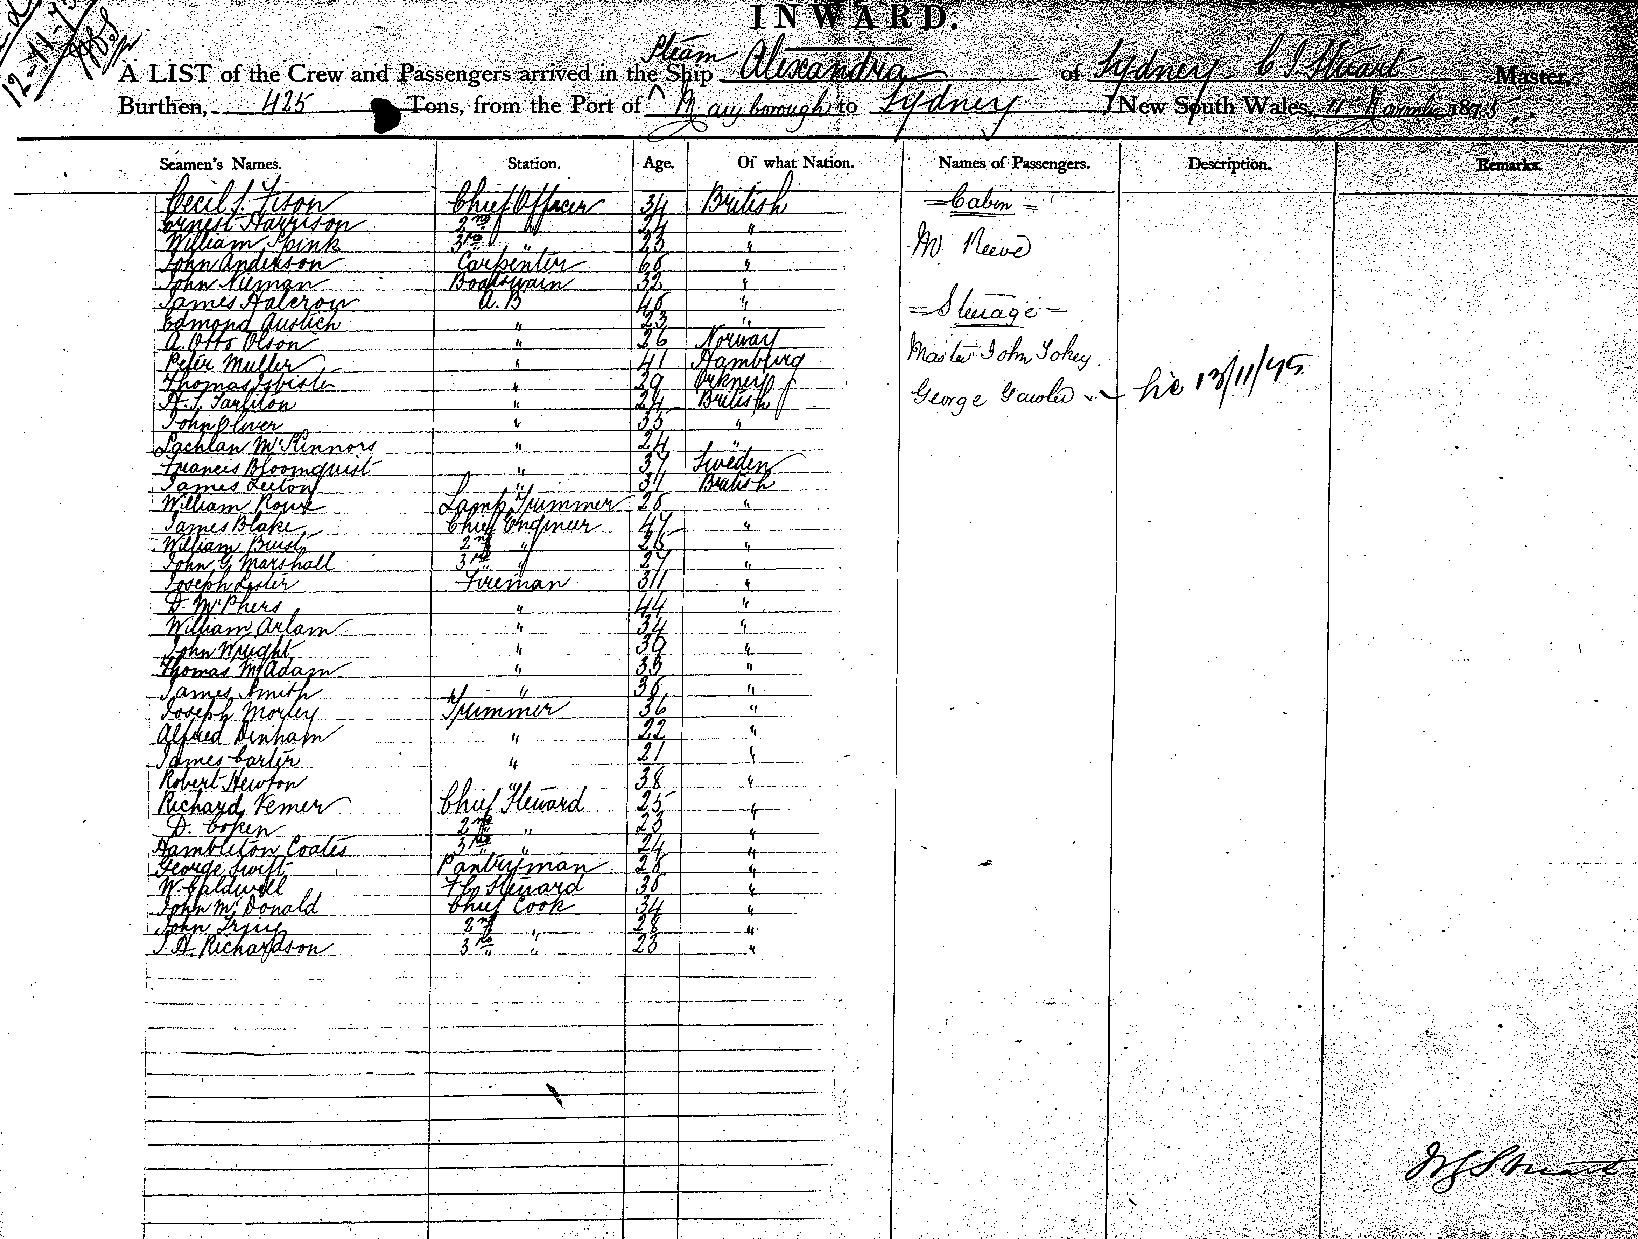 12-11-75
INWARD.
A LIST of the Crew and Passengers arrived in the Steam Ship Alexandra of Sydney C J Stuart Master,
Burthen, 425 Tons, from the Port of Maryborough to Sydney New South Wales, 11th November 1875
Seamen's Names. Station. Age. Of what Nation. Names of Passengers. Description. Remarks.
Cecil S. Fison Chief Officer 34 British Cabin
Ernest Harrison 2nd " 24 "
William Spink 3rd " 23 " Mr Reeve
John Anderson Carpenter 65 "
John Nieman Boatswain 32 "
James Halcrow A.B 45 " Steerage
Edmond Austich " 23 "
A. Otto Olson " 26 Norway Master John Tokey
Peter Muller " 41 Hamburg
Thomas Isbister " 29 Orkney
H. J. Tarleton " 24 British George Gawler 13/11/75
John Oliver " 33 "
Lachlan McKinnors " 24 "
Francis Bloomquist " 37 Sweden
James " 31 British
William Lamp Trimmer 28 "
James Blake Chief Engineer 47 "
William 2nd " 26 "
John G Marshall 3rd " 27 "
Joseph Lester Fireman 31 "
D. McPhers " 44 "
William Arlam " 34 "
John Wright " 39 "
Thomas McAdam " 35 "
James Smith " 36 "
Joseph Morley Trimmer 36 "
Alfred Denham " 22 "
James Carter " 21 "
Robert Hewton " 38 "
Richard Femer Chief Steward 25 "
D. Coken 2nd " 23 "
Hambleton Coates 3rd " 24 "
George Swift Pantryman 28 "
W. Caldwell Steward 38 "
John McDonald Chief Cook 34 "
John 2nd " 28 "
J. A. Richardson 3rd " 23 "